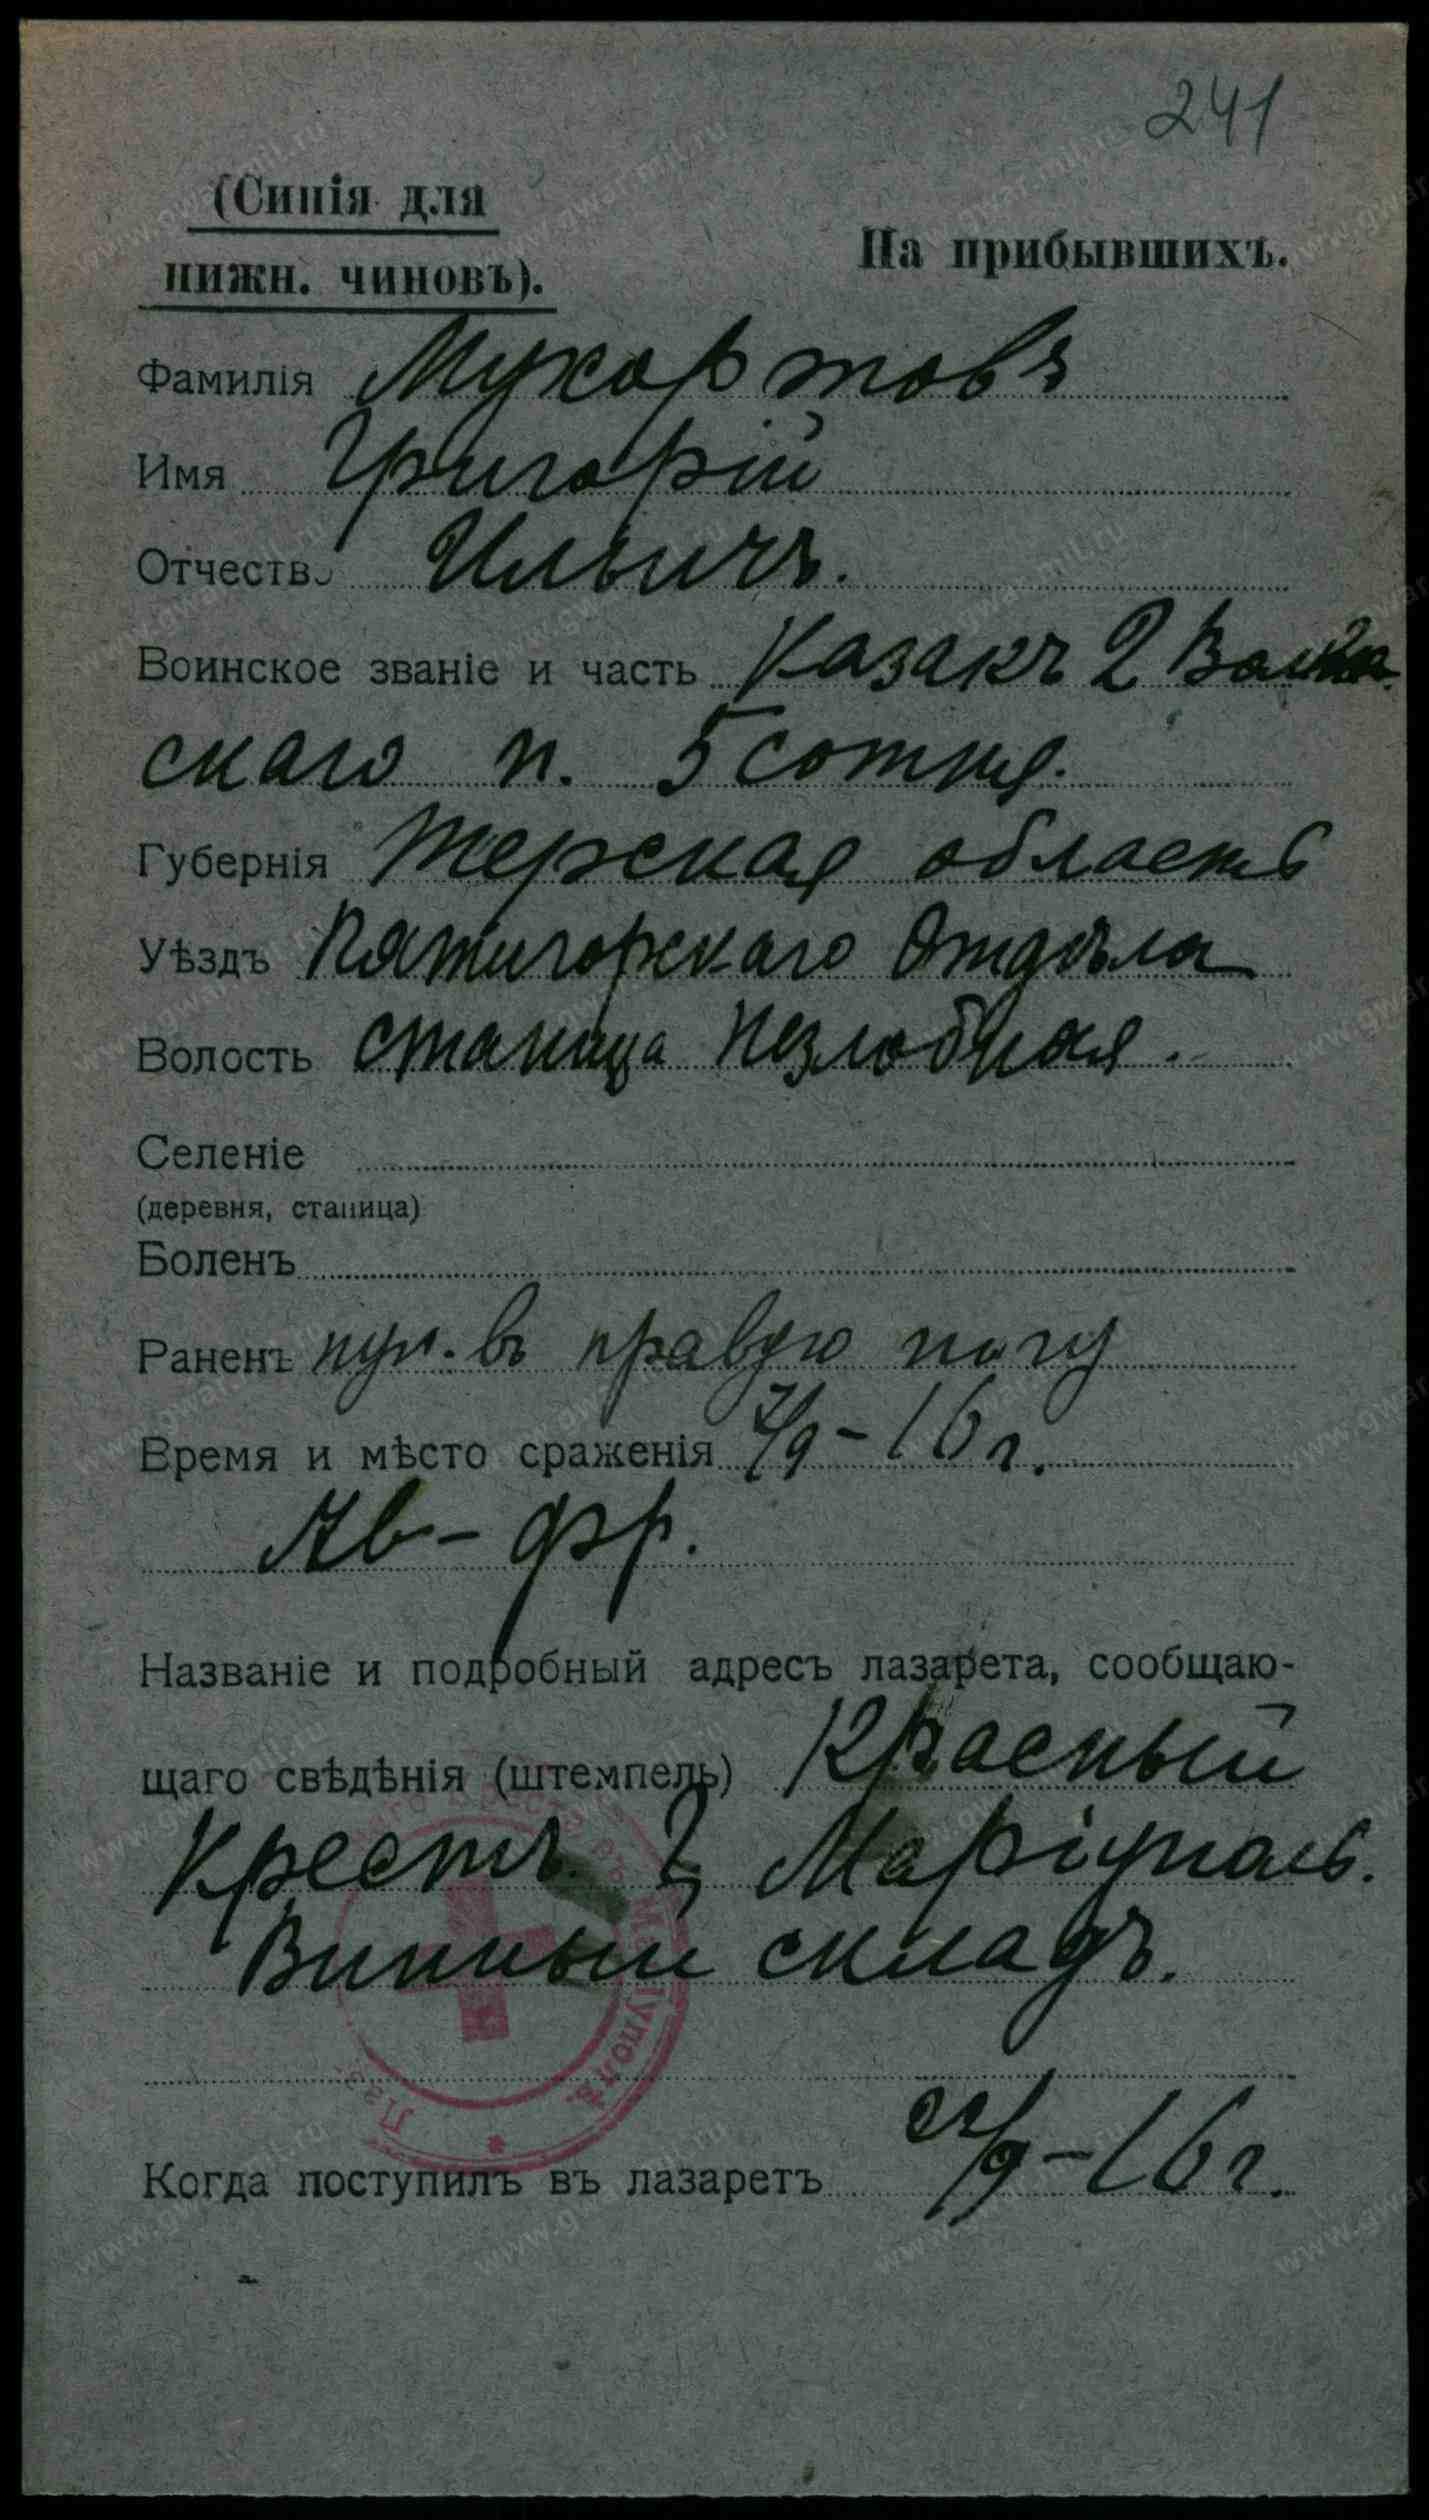 241
(Синія для
нижн. чиновъ).
На прибывшихъ.
Фамилія Мухортовъ
Имя Григорій
Отчество Ильичъ.
Воинское званіе и часть Казакъ 2
скаго п. 5 сотня.
Губернія Терская область
Уѣздъ Пятигорскаго Отдѣла
Волость станица Незлобная.
Селеніе
(деревня, станица)
Боленъ
Раненъ пул. въ правую ногу
Время и мѣсто сраженія 7/9-16 г.
Ав-фр.
Названіе и подробный адресъ лазарета, сообщаю-
щаго свѣдѣнія (штемпель) Красный
Крестъ. г. Маріуполь.
Винный складъ.
Когда поступилъ въ лазаретъ 22/9-16 г.
www.gwar.mil.ru